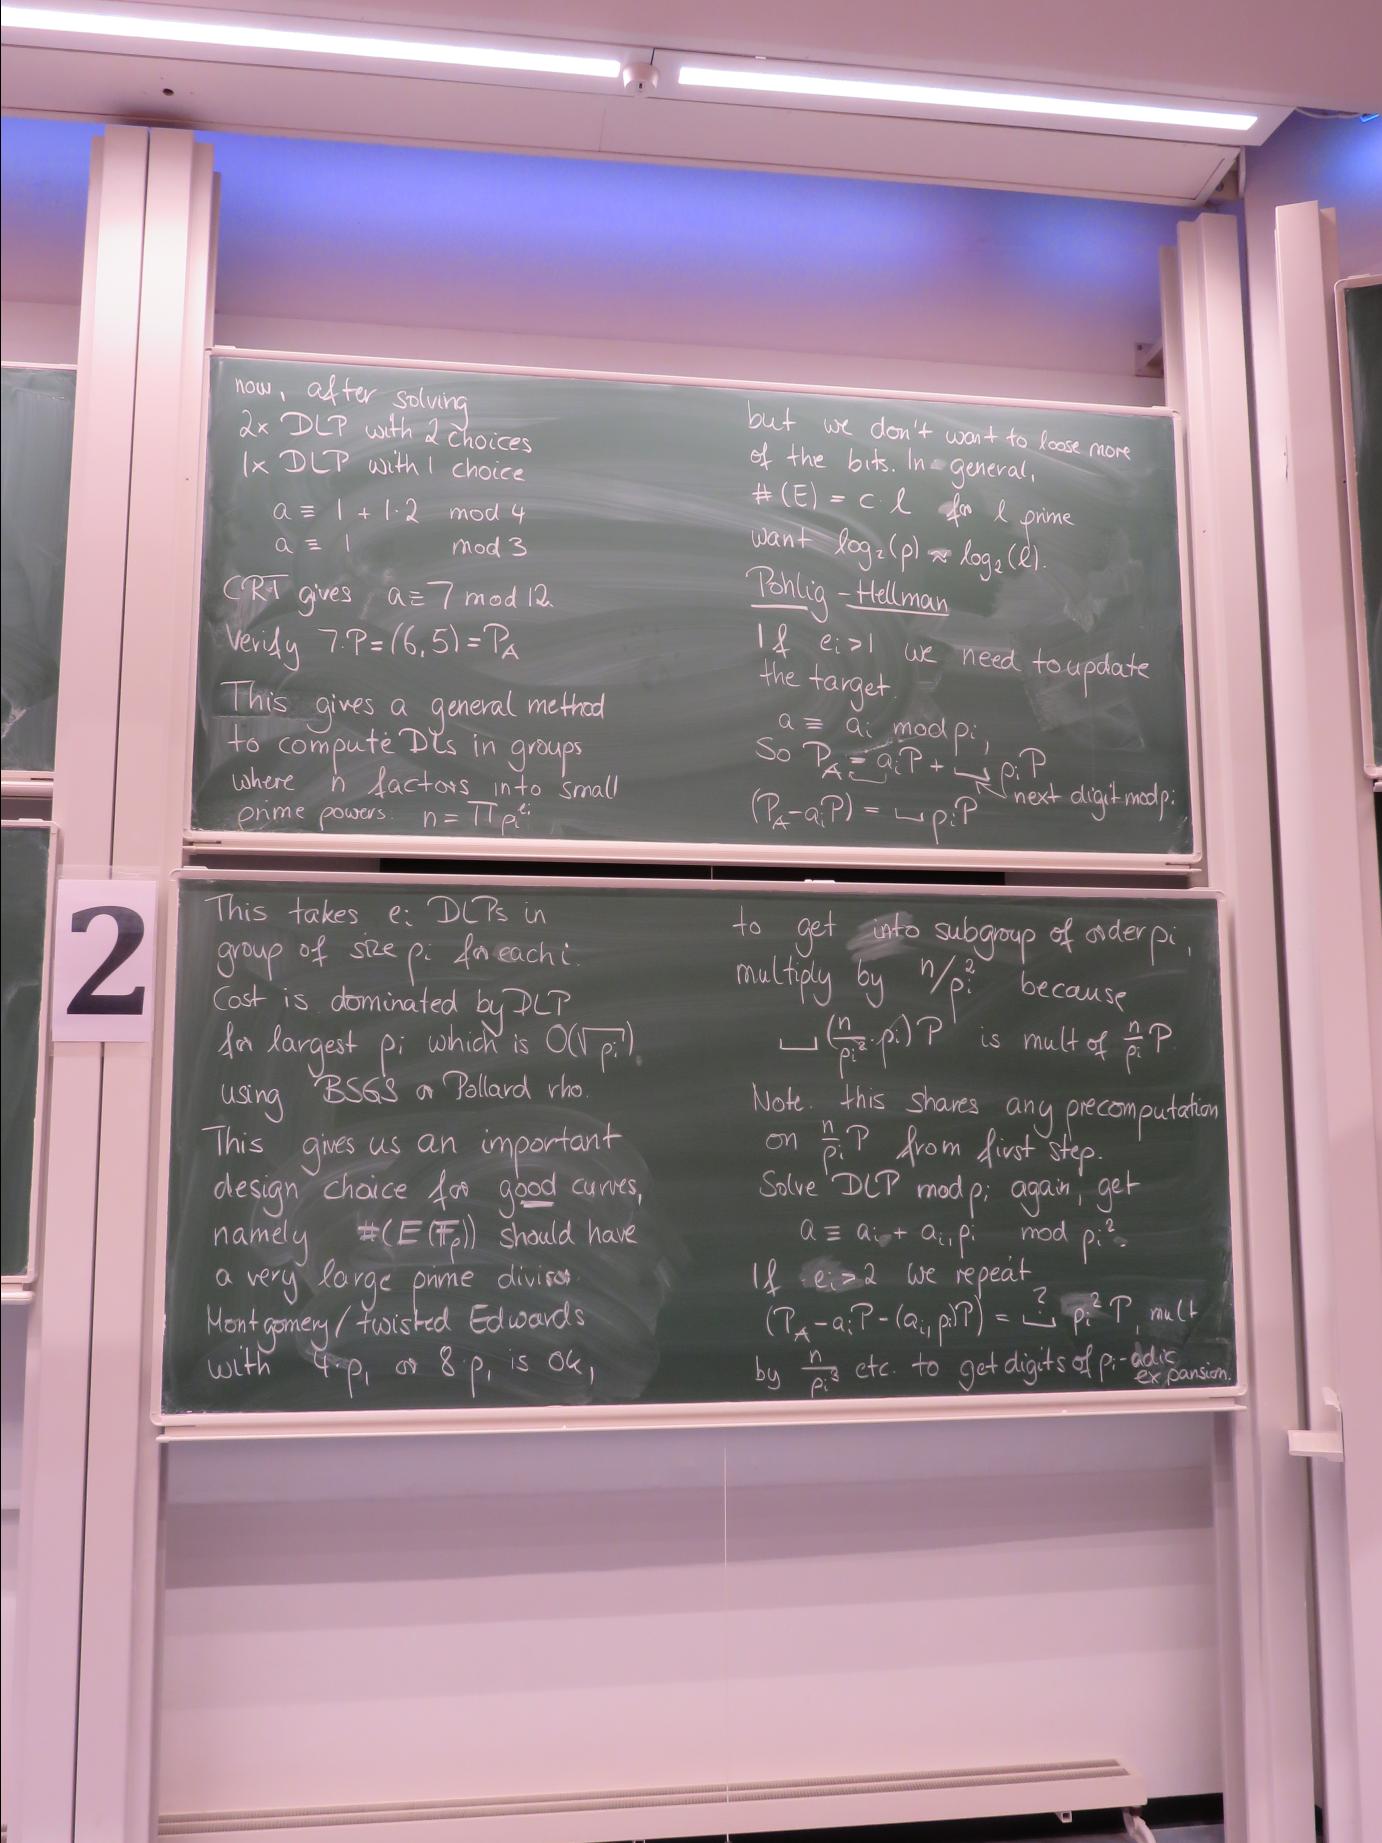 now, after solving
2x DLP with 2 choices
1x DLP with 1 choice
a ≡ 1 + 1·2 mod 4
a ≡ 1 mod 3
CRT gives a ≡ 7 mod 12
Verify 7·P = (6,5) = P_A
This gives a general method
to compute DLs in groups
where n factors into small
prime powers. n = ∏ p_i^{e_i}
but we don't want to loose more
of the bits. In general,
#(E) = c·l for l prime
want log₂(p) ≈ log₂(l).
Pohlig - Hellman
If e_i > 1 we need to update
the target.
a ≡ a_i mod p_i,
So P_A = a_i P + ␣ p_i P
next digit mod p_i
(P_A - a_i P) = ␣ p_i P
2
This takes e_i DLPs in
group of size p_i for each i.
Cost is dominated by DLP
for largest p_i which is O(√p_i)
using BSGS or Pollard rho.
This gives us an important
design choice for good curves,
namely #(E(F_p)) should have
a very large prime divisor
Montgomery / twisted Edwards
with 4·p₁ or 8·p₁ is ok,
to get into subgroup of order p_i,
multiply by n/p_i² because
␣ (n/p_i² · p_i) P is mult of n/p_i P
Note. this shares any precomputation
on n/p_i P from first step.
Solve DLP mod p_i again, get
a ≡ a_i + a_{i,1} p_i mod p_i².
If e_i > 2 we repeat
(P_A - a_i P - (a_{i,1} p_i) P) = ␣^? p_i² P, mult
by n/p_i³ etc. to get digits of p_i-adic
expansion.